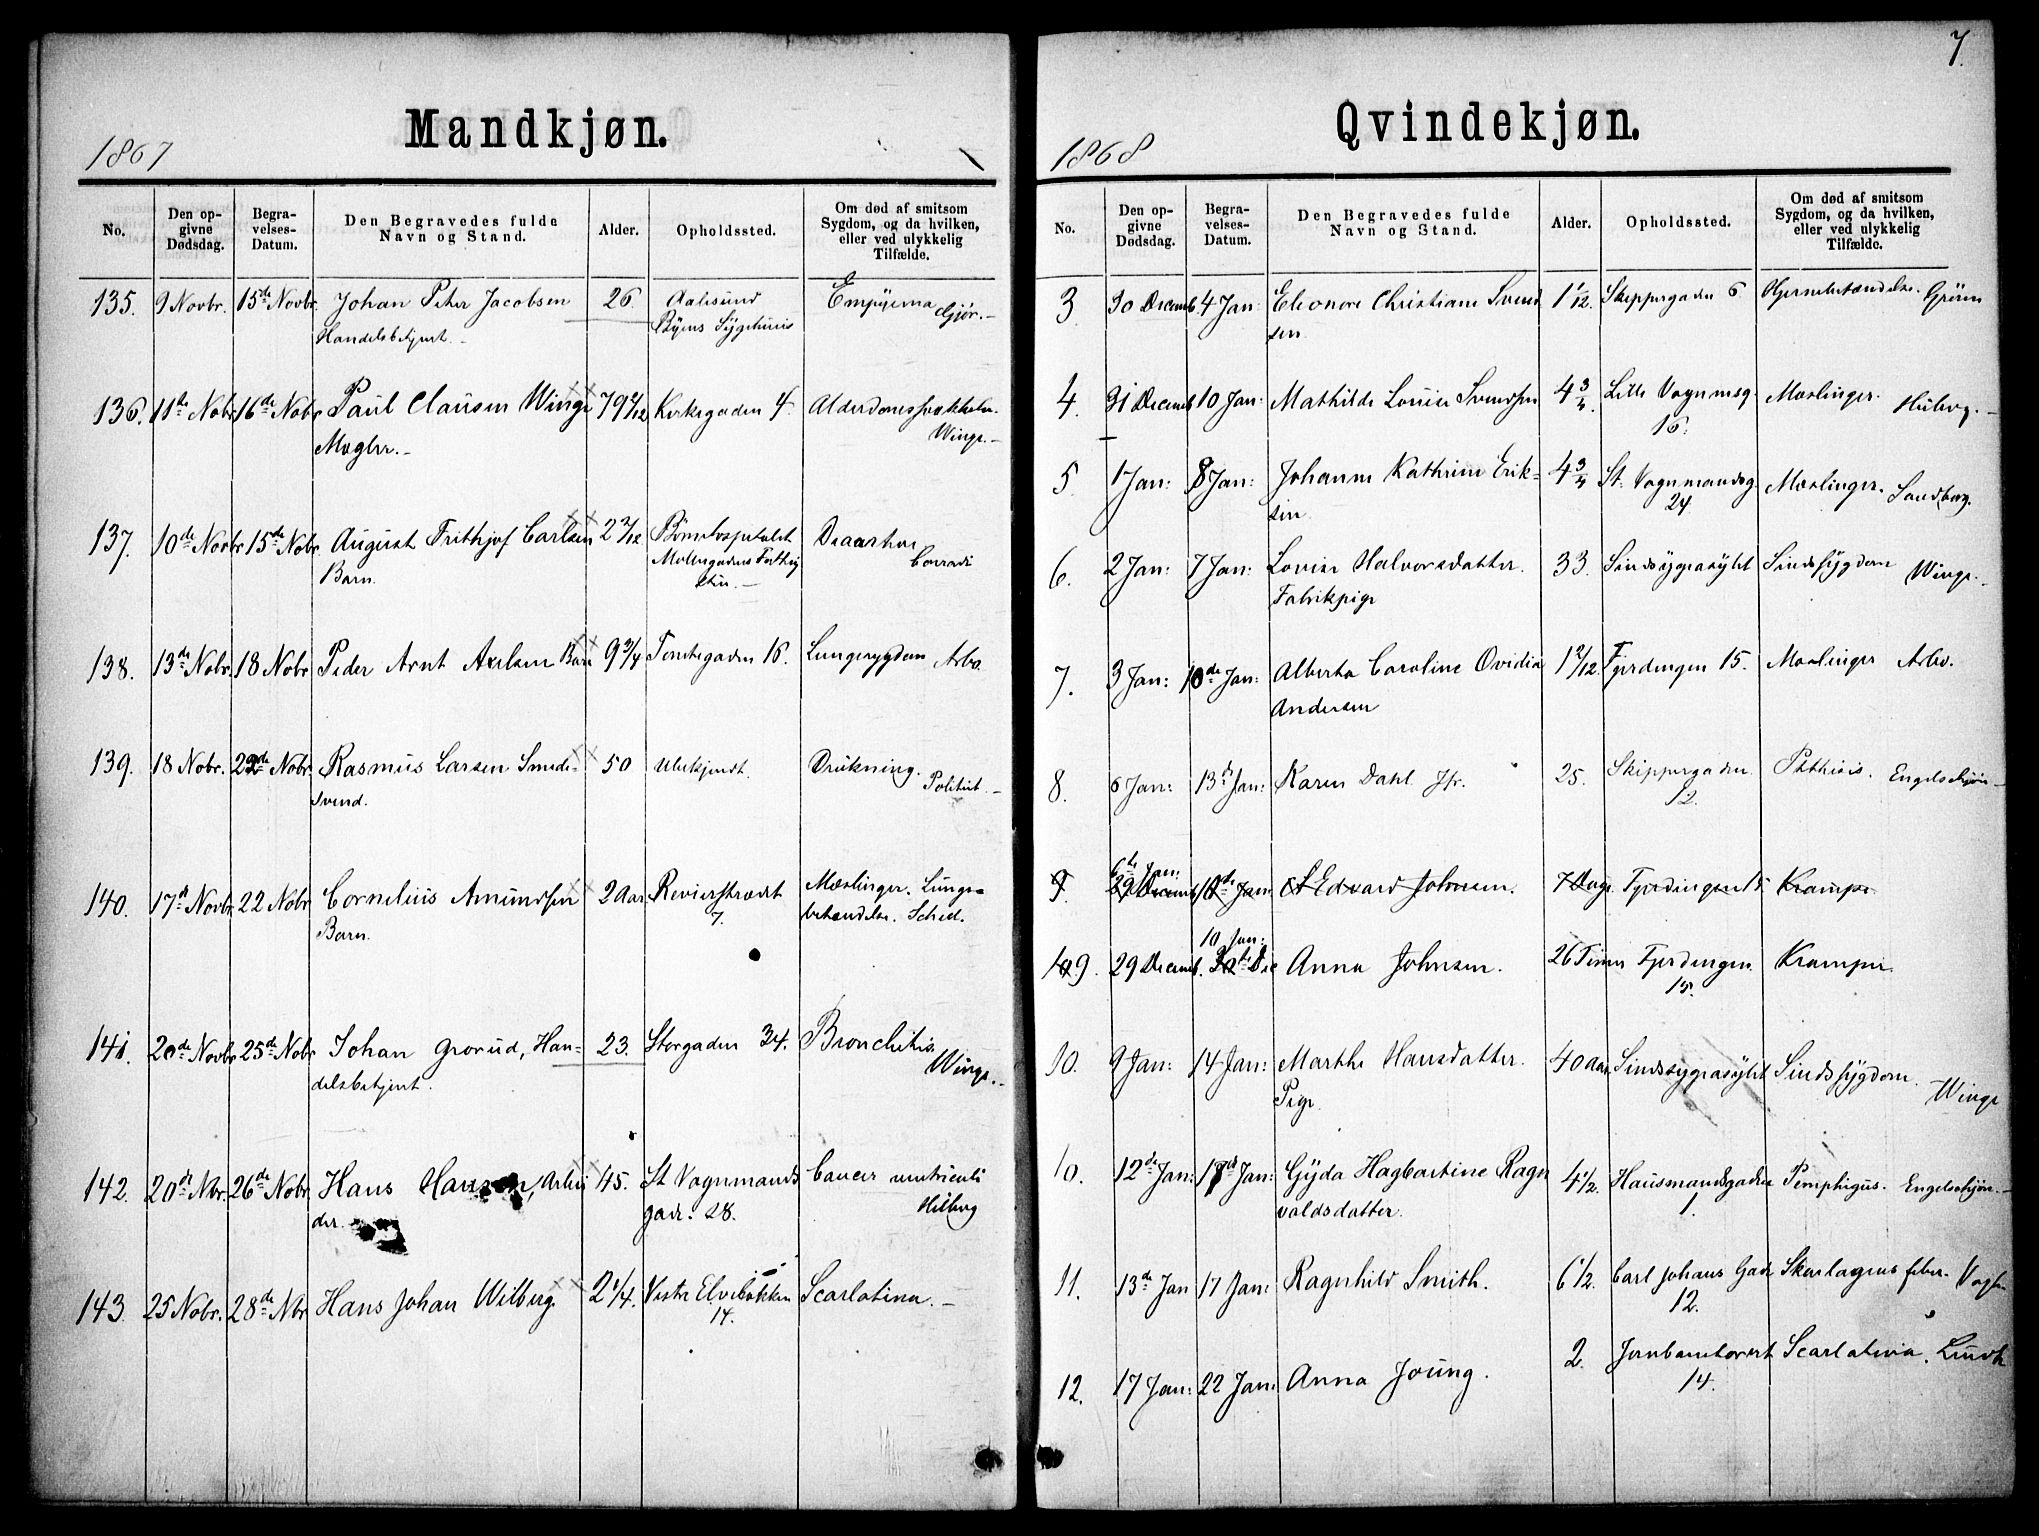 7.
Mandkjøn.
1867
No.
Den opgivne Dødsdag.
Begravelses-Datum.
Den Begravedes fulde Navn og Stand.
Alder.
Opholdssted.
Om død af smitsom Sygdom, og da hvilken, eller ved ulykkelig Tilfælde.
135. 9 Novbr. 15de Novbr. Johan Peter Jacobsen 26 Aalesund Empyema
Handelsbetjent. Byens Sygehuus Gjør.
136. 11te Nobr 16de Nobr Paul Clausen Winge 79 2/12 Kirkegaden 4
Mægler. Winge.
137. 10de Novbr 15de Nobr. August Frithjof Carlsen 2 2/12 Børnehospitalet Diaarhoe
Barn. Conradi
138. 13de Nobr. 18 Nobr Peder Arnt Axelsen Barn 9 3/4 Torvegaden 16. Lungesygdom Arbo
139. 18 Nobr. 22de Nobr. Rasmus Larsen Smede- 50 Ubekjendt. Drukning.
svend. Politiet.
140. 17de Novbr 22 Nobr Cornelius Amundsen 2 Aar Revierstrædet Mæslinger. Lunge-
Barn. 7. betændelse. Sched.
141. 20de Novbr 25de Nobr Johan Grorud, Han- 23. Storgaden 34. Bronchitis
delsbetjent. Winge.
142. 20de Nbr. 26de Nobr. Hans Hansen, Arbei 45. St Vognmands Cancer ventriculi
der. gade. 28. Hilberg
143. 25 Nobr. 28de Nbr Hans Johan Wilberg 2 1/4. Vestre Elvebakken Scarlatina.
14.
Qvindekjøn.
1868
No.
Den opgivne Dødsdag.
Begravelses-Datum.
Den Begravedes fulde Navn og Stand.
Alder.
Opholdssted.
Om død af smitsom Sygdom, og da hvilken, eller ved ulykkelig Tilfælde.
3 30 Decemb. 4 Jan: Eleonore Christiane Svend 1 1/12. Skippergaden 6 Hjernebetændelse.
sen
4. 31 Decemb 10 Jan: Mathilde Louise Svendsen 4 3/4 Lille Vognmsg. Mæslinger.
16.
5. 1 Jan: 8 Jan: Johanne Kathrine Erik- 4 3/4 St. Vognmandsg Mæslinger. Sandberg.
sen 24.
6. 2 Jan: 7 Jan: Lovise Halvorsdatter. 33. Sindssygeasylet Sindssygdom Winge.
Fabrikpige
7. 3 Jan: 10de Jan: Alberta Caroline Ovidia 1 2/12. Fjerdingen 15. Mæslinger Arbo.
Andersen
8. 6 Jan: 13de Jan: Karen Dahl Jfr. 25. Skippergaden Phthisis. Engelschjøn
12.
6te Jan.
9. 29 Decemb 10de Jan. Edvard Johnsen. 7 Dage Fjerdingen 15 Krampe
10 Jan:
109. 29 Decemb. 30te Dec Anna Johnsen. 26 Timer Fjerdingen Krampe
15.
10. 9 Jan: 14 Jan: Marthe Hansdatter. 40 Aar Sindssygeasylet Sindssygdom.
Pige. Winge
10. 12de Jan: 17de Jan: Gyda Hagbartine Ragn 4 1/2. Hausmandsgaden Pemphigus. Engelschjøn.
valdsdatter. 1.
11. 13de Jan 17 Jan: Ragnhild Smith. 6 1/2. Carl Johans Gade Skarlagensfeber.
12.
12. 17 Jan: 22 Jan: Anna Joung. 2. Jernbanetorvet Scarlatina.
14.